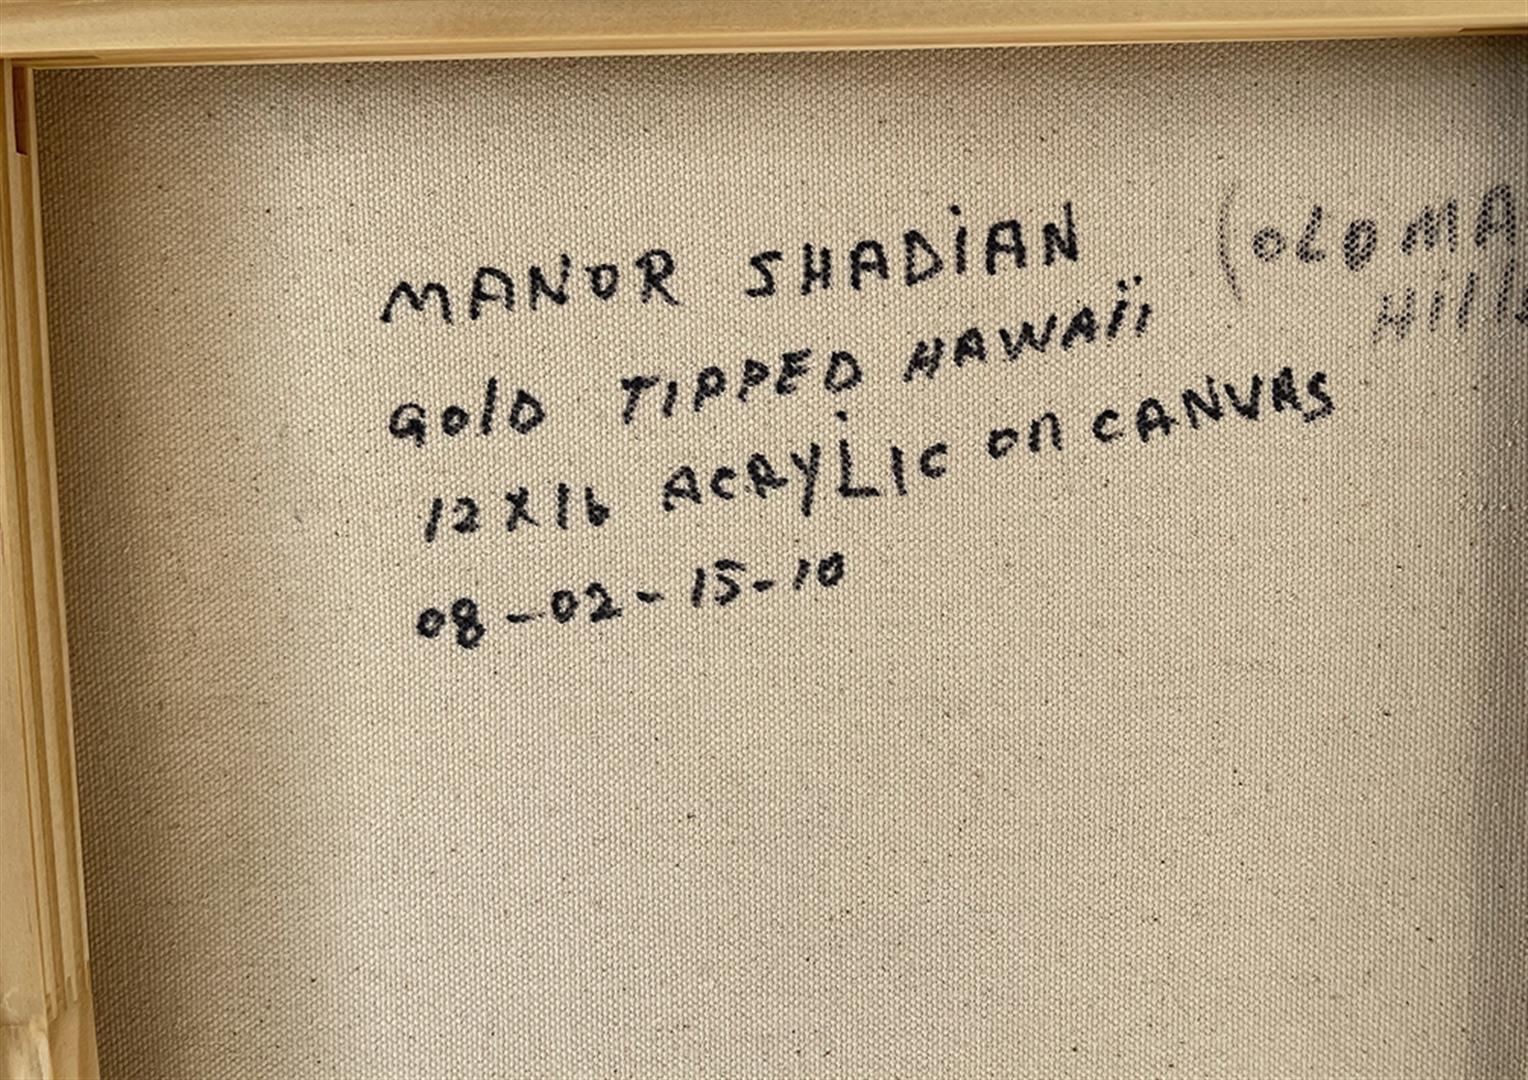 MANOR SHADiAN
GolD TIPPED HAWAii
12X16 ACRYLIC on CANVAS
08-02-15-10
(OLOMA
Hills